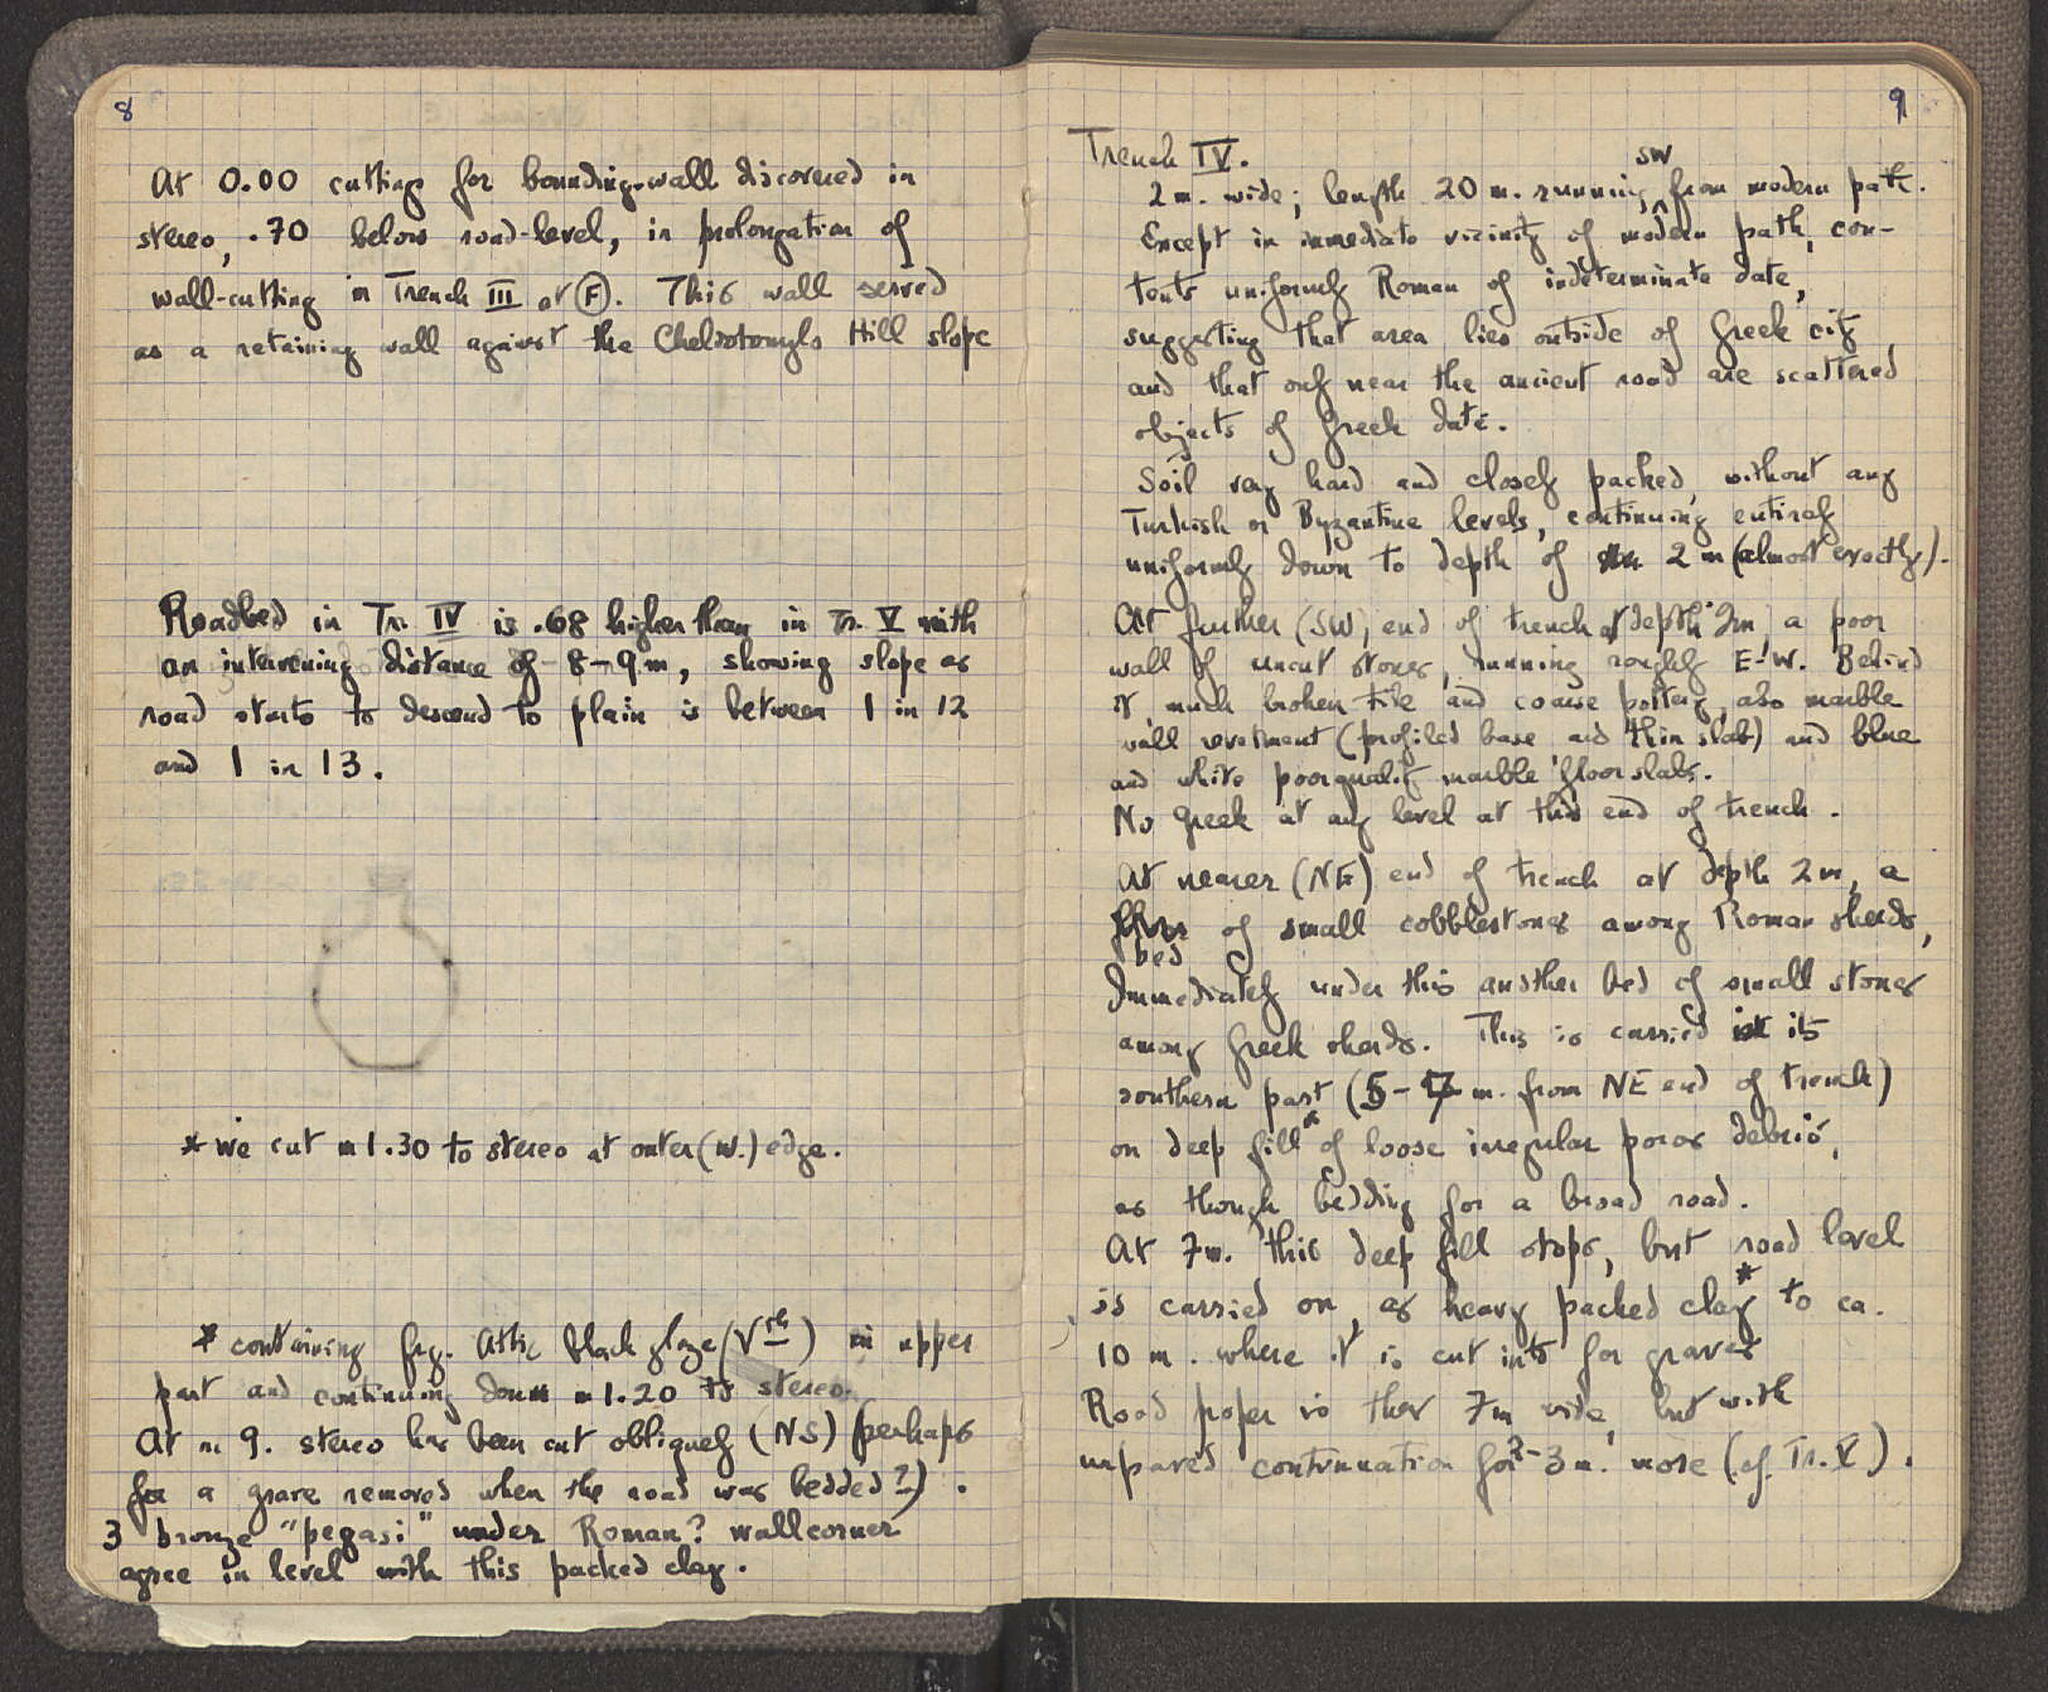 8
At 0.00 cutting for bounding-wall discovered in
stereo, .70 below road-level, in prolongation of
wall-cutting in Trench III at (F). This wall served
as a retaining wall against the Cheliotomylo Hill slope
Roadbed in Tr. IV is .68 higher than in Tr. V with
an intervening distance of 8-9 m, showing slope as
road starts to descend to plain is between 1 in 12
and 1 in 13.
* we cut m 1.30 to stereo at outer (W.) edge.
* containing frg. Attic black glaze (Vth) in upper
part and continuing down m 1.20 to stereo.
At m 9. stereo has been cut obliquely (NS) (perhaps
for a grave removed when the road was bedded?).
3 bronze "pegasi" under Roman? wallcorner
agree in level with this packed clay.
9
Trench IV.
2 m. wide; length 20 m. running SW from modern path.
Except in immediate vicinity of modern path, con-
tents uniformly Roman of indeterminate date,
suggesting that area lies outside of Greek city,
and that only near the ancient road are scattered
objects of Greek date.
Soil very hard and closely packed, without any
Turkish or Byzantine levels, continuing entirely
uniformly down to depth of 2 m (almost exactly).
At further (SW) end of trench at depth 2m, a poor
wall of uncut stones, running roughly E-W. Behind
it much broken tile and coarse pottery, also marble
wall revetment (profiled base and thin slab) and blue
and white poor quality marble floor slabs.
No Greek at any level at this end of trench.
At nearer (NE) end of trench at depth 2 m, a
bed of small cobblestones among Roman sherds,
Immediately under this another bed of small stones
among Greek sherds. This is carried in its
southern part (5-7 m. from NE end of trench)
on deep fill* of loose irregular poros debris,
as though bedding for a broad road.
At 7m. this deep fill stops, but road level
is carried on, as heavy packed clay* to ca.
10 m. where it is cut into for graves
Road proper is thus 7m wide, but with
unpaved continuation for 2-3 m. more (cf. Tr. V).